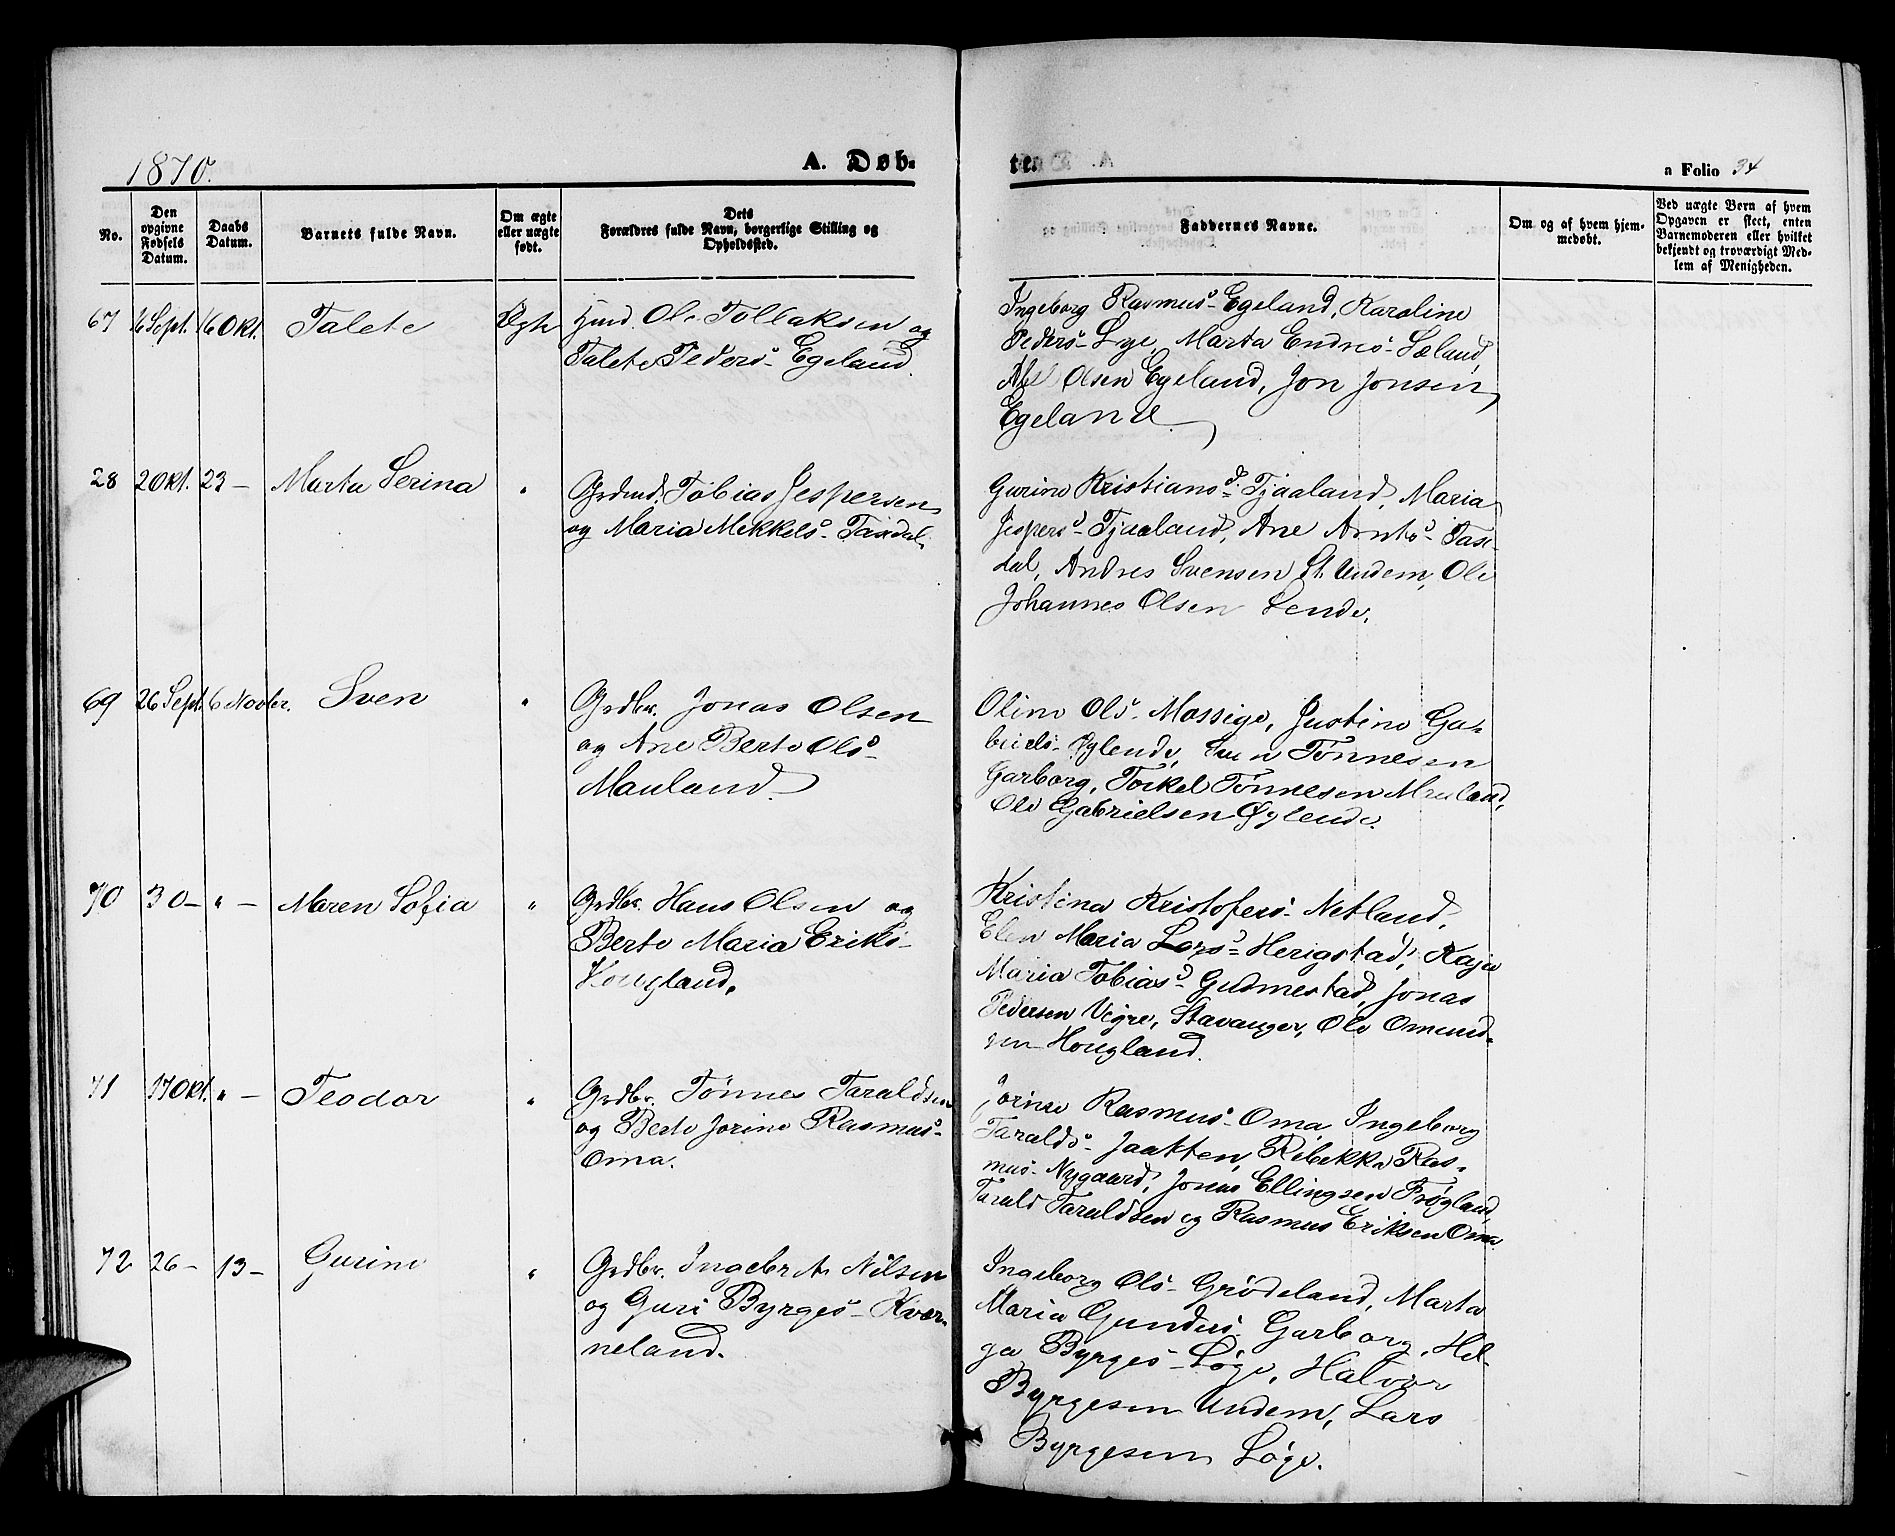 1870.
A. Døb-
te.
a Folio 34
No.
Den
opgivne
Fødsels
Datum.
Daabs
Datum.
Barnets fulde Navn.
Om ægte
eller uægte
født.
Dets
Forældres fulde Navn, borgerlige Stilling og
Opholdssted.
Faddernes Navne.
Om og af hvem hjem-
medøbt.
Ved uægte Børn af hvem
Opgaven er skeet, enten
Barnemoderen eller hvilket
bekjendt og troværdigt Med-
lem af Menigheden.
67 16 Sept. 16 Okt. Talete Ægte Hmd. Ole Tollaksen og
Talete Peders- Egeland.
Ingeborg Rasmus- Egeland, Karoline
Peders- Lye, Marta Endres- Sæland,
Olsen Egeland, Jon Jonsen
Egeland.
28 2 Okt. 23 - Marta Serina " Grdmd. Tobias Jespersen
og Maria Mekkels- Taxdal.
Gurine Kristiansd. Tjaaland, Maria
Jespers- Tjaaland, Ane Arnts- Tax-
dal, Andres Svensen St. Undem, Ole
Johannes Olsen Lende.
69 26 Sept. 6 Novbr. Sven " Grdbr. Jonas Olsen
og Ane Berte Ols-
Mauland.
Oline Ols- Mossige, Justine Ga-
briels- Øglende, Sven Tønnesen
Garborg, Torkel Tønnesen Mauland,
Ole Gabrielsen Øglende.
70 30 - " - Maren Sofia " Grdbr. Hans Olsen og
Berte Maria Eriks-
Hougland.
Kristina Kristofers- Netland,
Elen Maria Lars- Herigstad, Kaja
Maria Tobias- Gudmestad, Jonas
Pedersen Vigre, Stavanger, Ole Omund-
sen Hougland.
71 17 Okt. " - Teodor " Grdbr. Tønnes Taraldsen
og Berte Jorine Rasmus-
Oma.
Jorine Rasmus- Oma, Ingeborg
Taralds- Jaatten, Rebekka Ras-
mus- Nygaard, Jonas Ellingsen Frøgland,
Tarald Taraldsen og Rasmus Eriksen Oma.
72 26 - 13 - Gurine " Grdbr. Ingebret Nilsen
og Guri Byrges- Kver-
neland.
Ingeborg Ols- Grødeland, Marta
Maria Gunders- Garborg, Hel-
ga Byrges- Løge, Halvor
Byrgesen Undem, Lars
Byrgesen Løge.